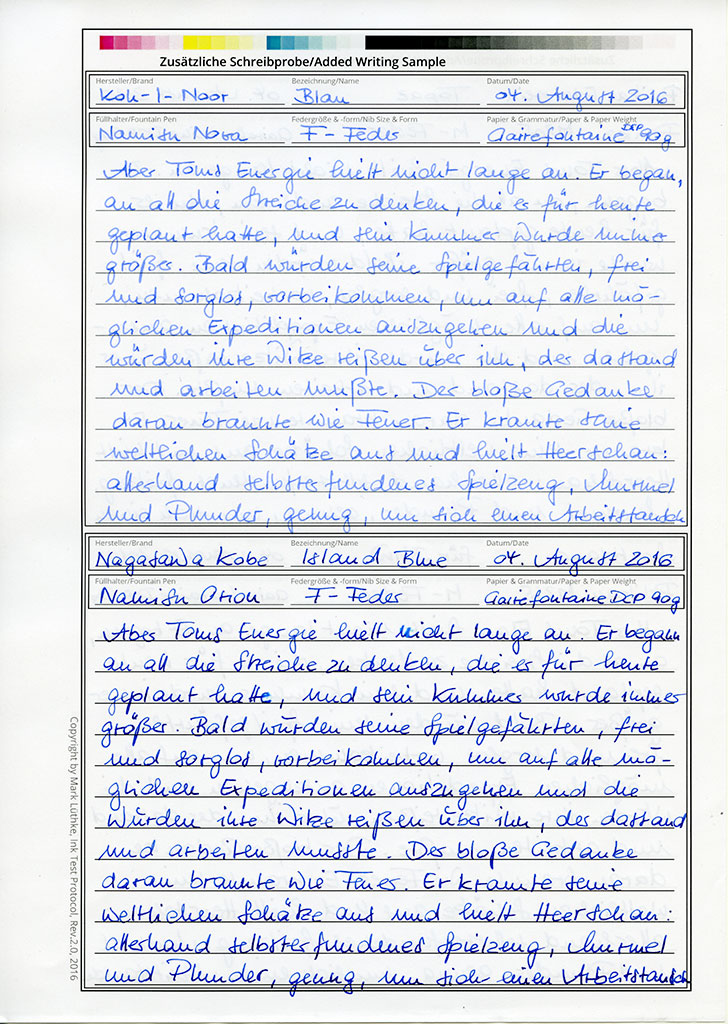 Zusätzliche Schreibprobe/Added Writing Sample
Hersteller/Brand Bezeichnung/Name Datum/Date
Koh-I-Noor Blau 04. August 2016
Füllhalter/Fountain Pen Federgröße & -form/Nib Size & Form Papier & Grammatur/Paper & Paper Weight
Namisu Nova F-Feder Clairefontaine DCP 90g
Aber Toms Energie hielt nicht lange an. Er began,
an all die Streiche zu denken, die er für heute
geplant hatte, und sein Kummer wurde immer
größer. Bald würden seine Spielgefährten, frei
und sorglos, vorbeikommen, um auf alle mö-
glichen Expeditionen auszugehen und die
würden ihre Witze reißen über ihn, der dastand
und arbeiten mußte. Der bloße Gedanke
daran brannte wie Feuer. Er kramte seine
weltlichen Schätze aus und hielt Heerschau:
allerhand selbsterfundenes Spielzeug, Murmel
und Plunder, genug, um sich einen Arbeitstausch
Hersteller/Brand Bezeichnung/Name Datum/Date
Nagasawa Kobe Island Blue 04. August 2016
Füllhalter/Fountain Pen Federgröße & -form/Nib Size & Form Papier & Grammatur/Paper & Paper Weight
Namisu Orion F-Feder Clairefontaine DCP 90g
Aber Toms Energie hielt nicht lange an. Er begann
an all die Streiche zu denken, die er für heute
geplant hatte, und sein Kummer wurde immer
größer. Bald würden seine Spielgefährten, frei
und sorglos, vorbeikommen, um auf alle mö-
glichen Expeditionen auszugehen und die
würden ihre Witze reißen über ihn, der dastand
und arbeiten musste. Der bloße Gedanke
daran brannte wie Feuer. Er kramte seine
weltlichen Schätze aus und hielt Heerschau:
allerhand selbsterfundenes Spielzeug, Murmel
und Plunder, genug, um sich einen Arbeitstausch
Copyright by Mark Lüthke, Ink Test Protocol, Rev.2.0, 2016